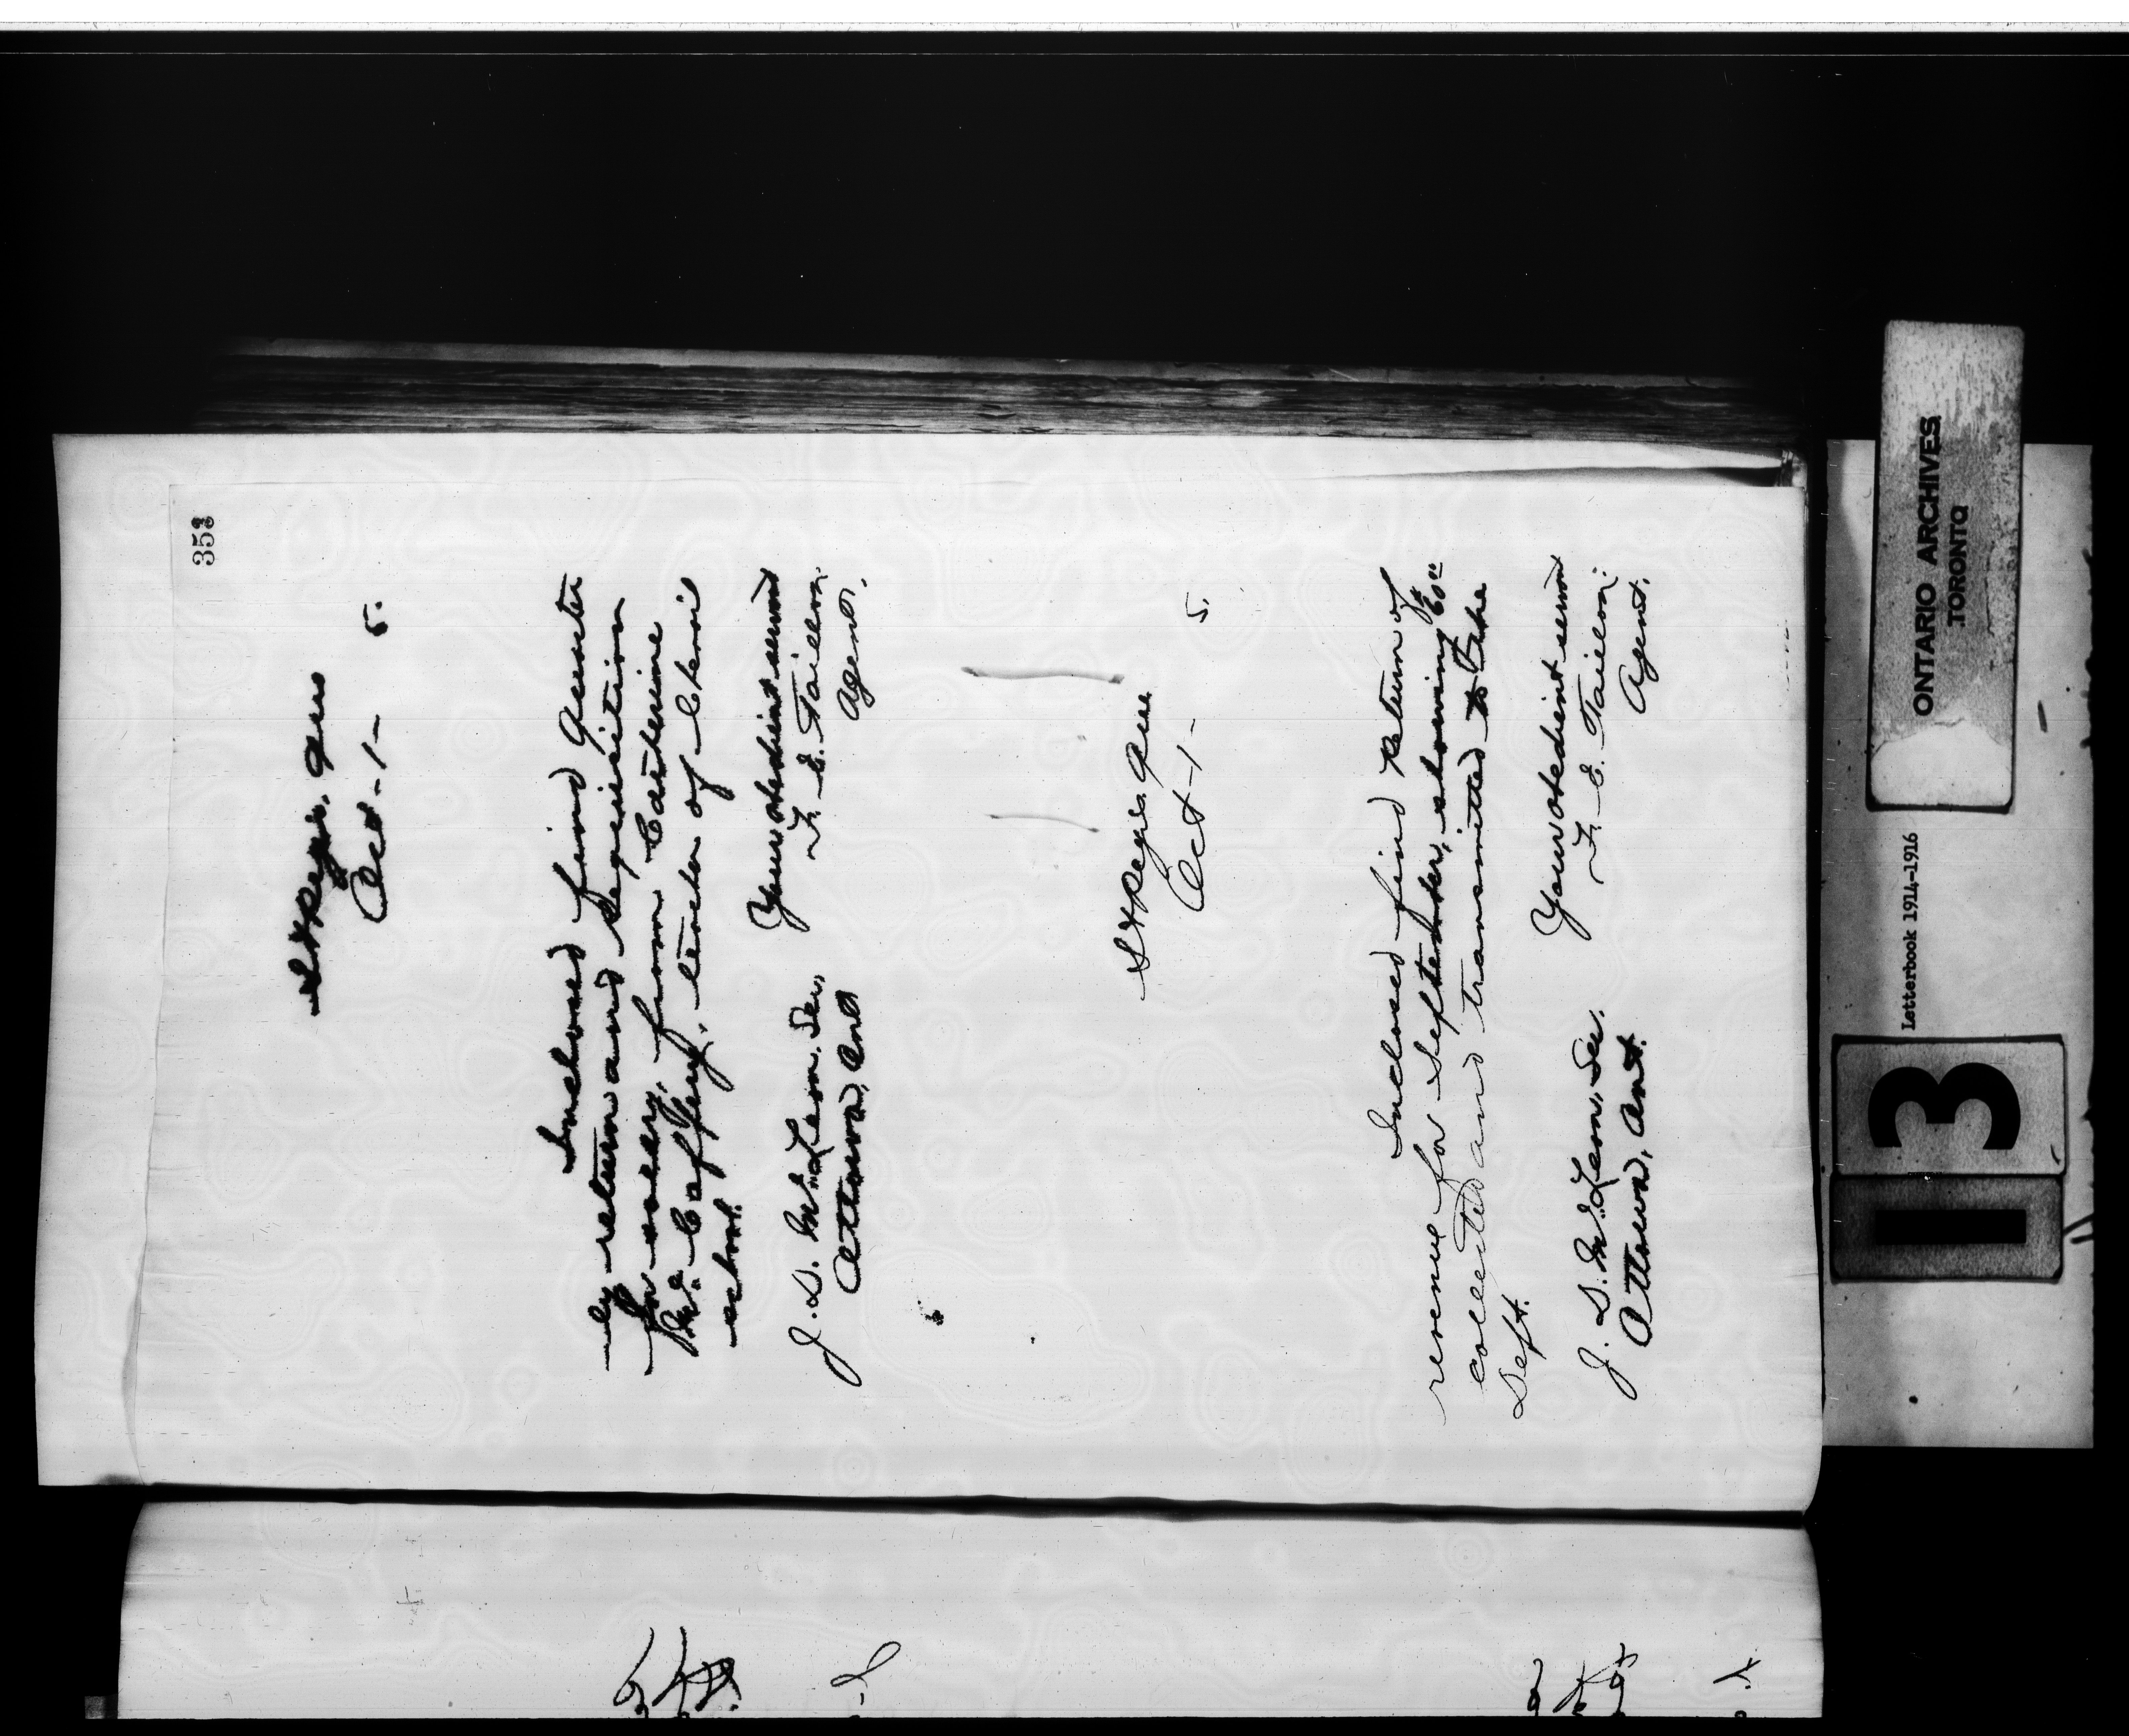 353
St Regis. Que
Oct - 1 - 5.
Inclosed find quarter
ly return and requisition
for salary, from Catherine
McCaffery, teacher of Chenail
school.
Your obedient servant
J. D. McLean, Sec, F. E. Taillon.
Ottawa, Ont Agent.
St Regis. Que
Oct - 1 - 5.
Inclosed find return of
revenue for September, showing
collected and transmitted
Sept.
Your obedient servant
J. D. McLean, Sec. F. E. Taillon.
Ottawa, Ont. Agent.
ONTARIO ARCHIVES
TORONTO
Letterbook 1914-1916
13